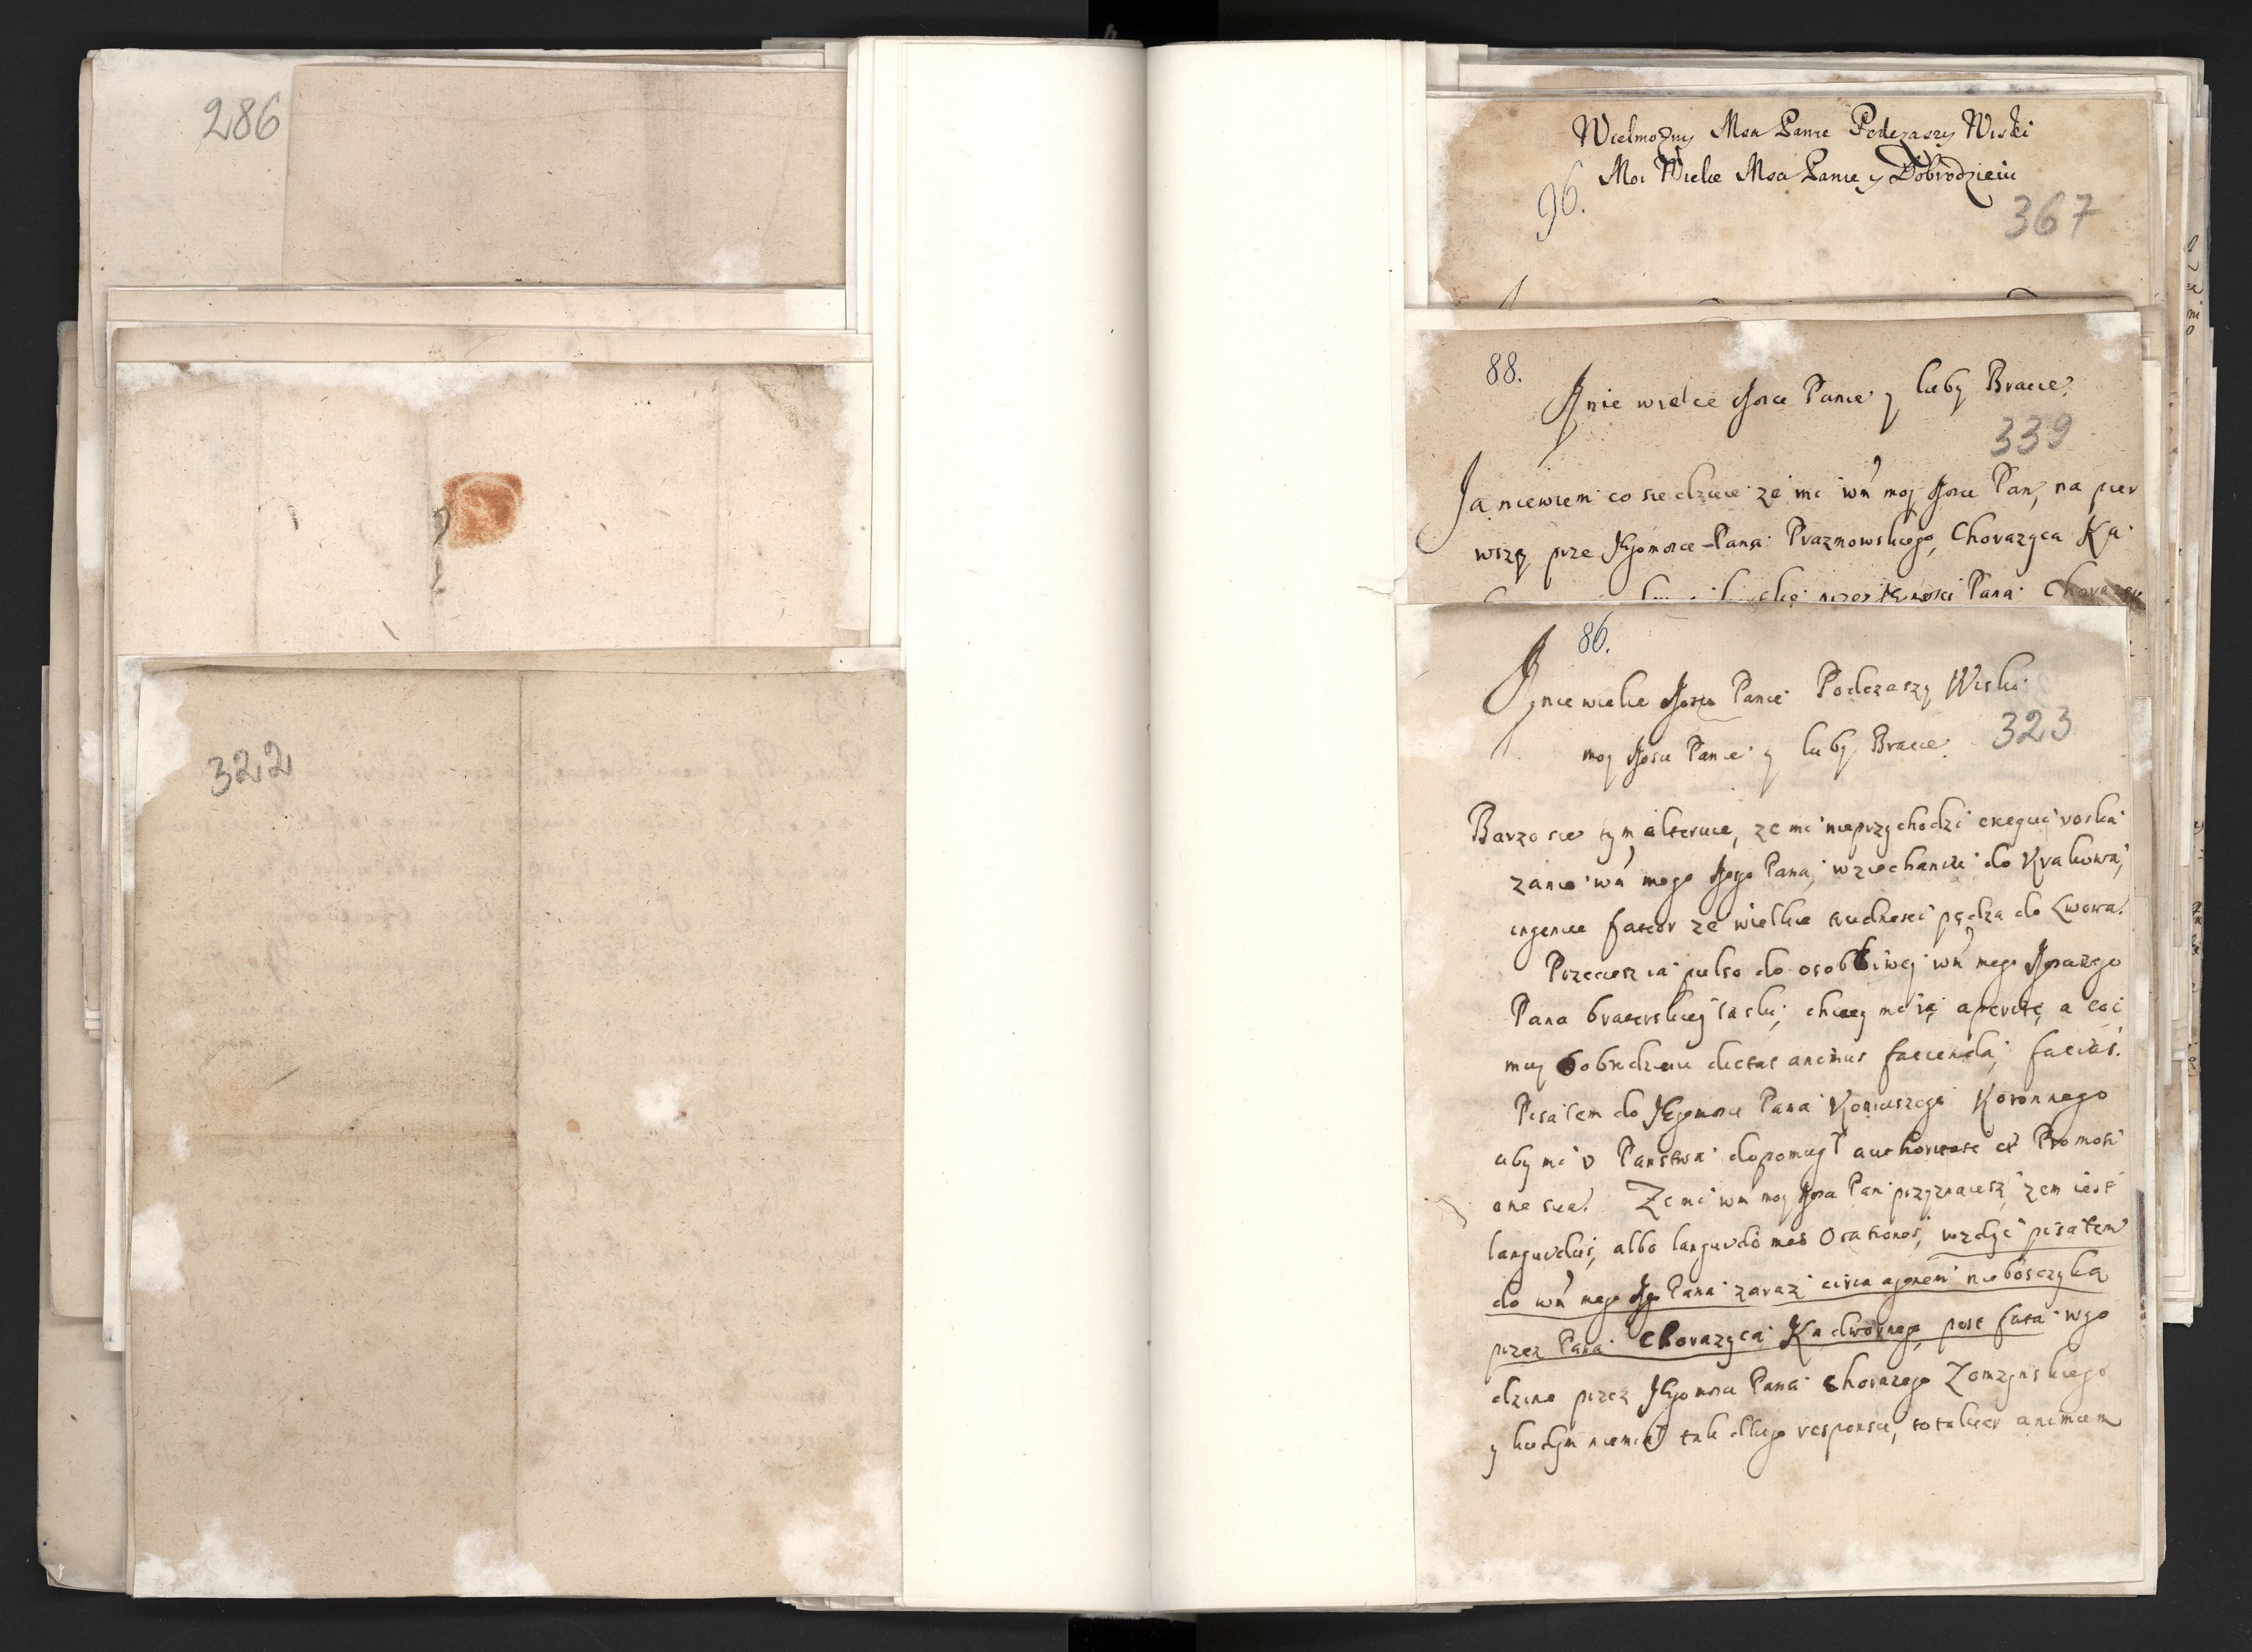 286
322
Wielmozny Msci Panie Podczaszy Wiski
Moi Wielce Msci Panie y Dobrodzieiu
96.
367
88.
Mnie wielce Mosci Panie y luby Bracie
339
Ja niewiem co sie dzieie ze mi wm moj Mosci Pan, na pier
wszy prze Jegomosci Pana Prazmowskiego, Chorazyca Ka
Pana Chorazego
86.
Mnie wielce Mosci Panie Podczaszy Wiski
323
moj Mosci Panie y luby Bracie
Barzo sie tym alteruie, ze mi nieprzychodzi exequi roska
zanie wm mego Mego Pana, wziechanie do Krakowa,
ingenue fateor ze wielkie trudnosci pędza do Lwowa.
Przeciesz ia pulso do osobliwej wm mego Mosciwego
Pana braterskiey łaski, chciey mi ią aperire, a coć
muy Dobrodzieiu dictat animus facienda, facias.
Pisałem do Jegomosci Pana Koniuszego Koronnego
aby mi v Panstwa dopomugł authoritate et Promoti
one sua. Ze mi wm moj Mosci Pan przyznaiesz zem iest
languidus, albo languido mea Orationes, wzdyć pisałem
do wm mego Mego Pana zaraz circa agonem nieboszczyka
przez Pana Chorazyca Nadwornego, post fata w go
dzine przez Jegomosci Pana Chorazego Łomzynskiego
y kiedym niemiał tak długo responsu, totaliter animum